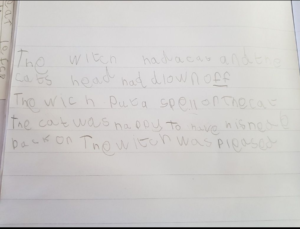 The witch had a cat and the
cats head had blown off
The wich put a spell on the cat
The cat was happy to have his head
back on The witch was pleased